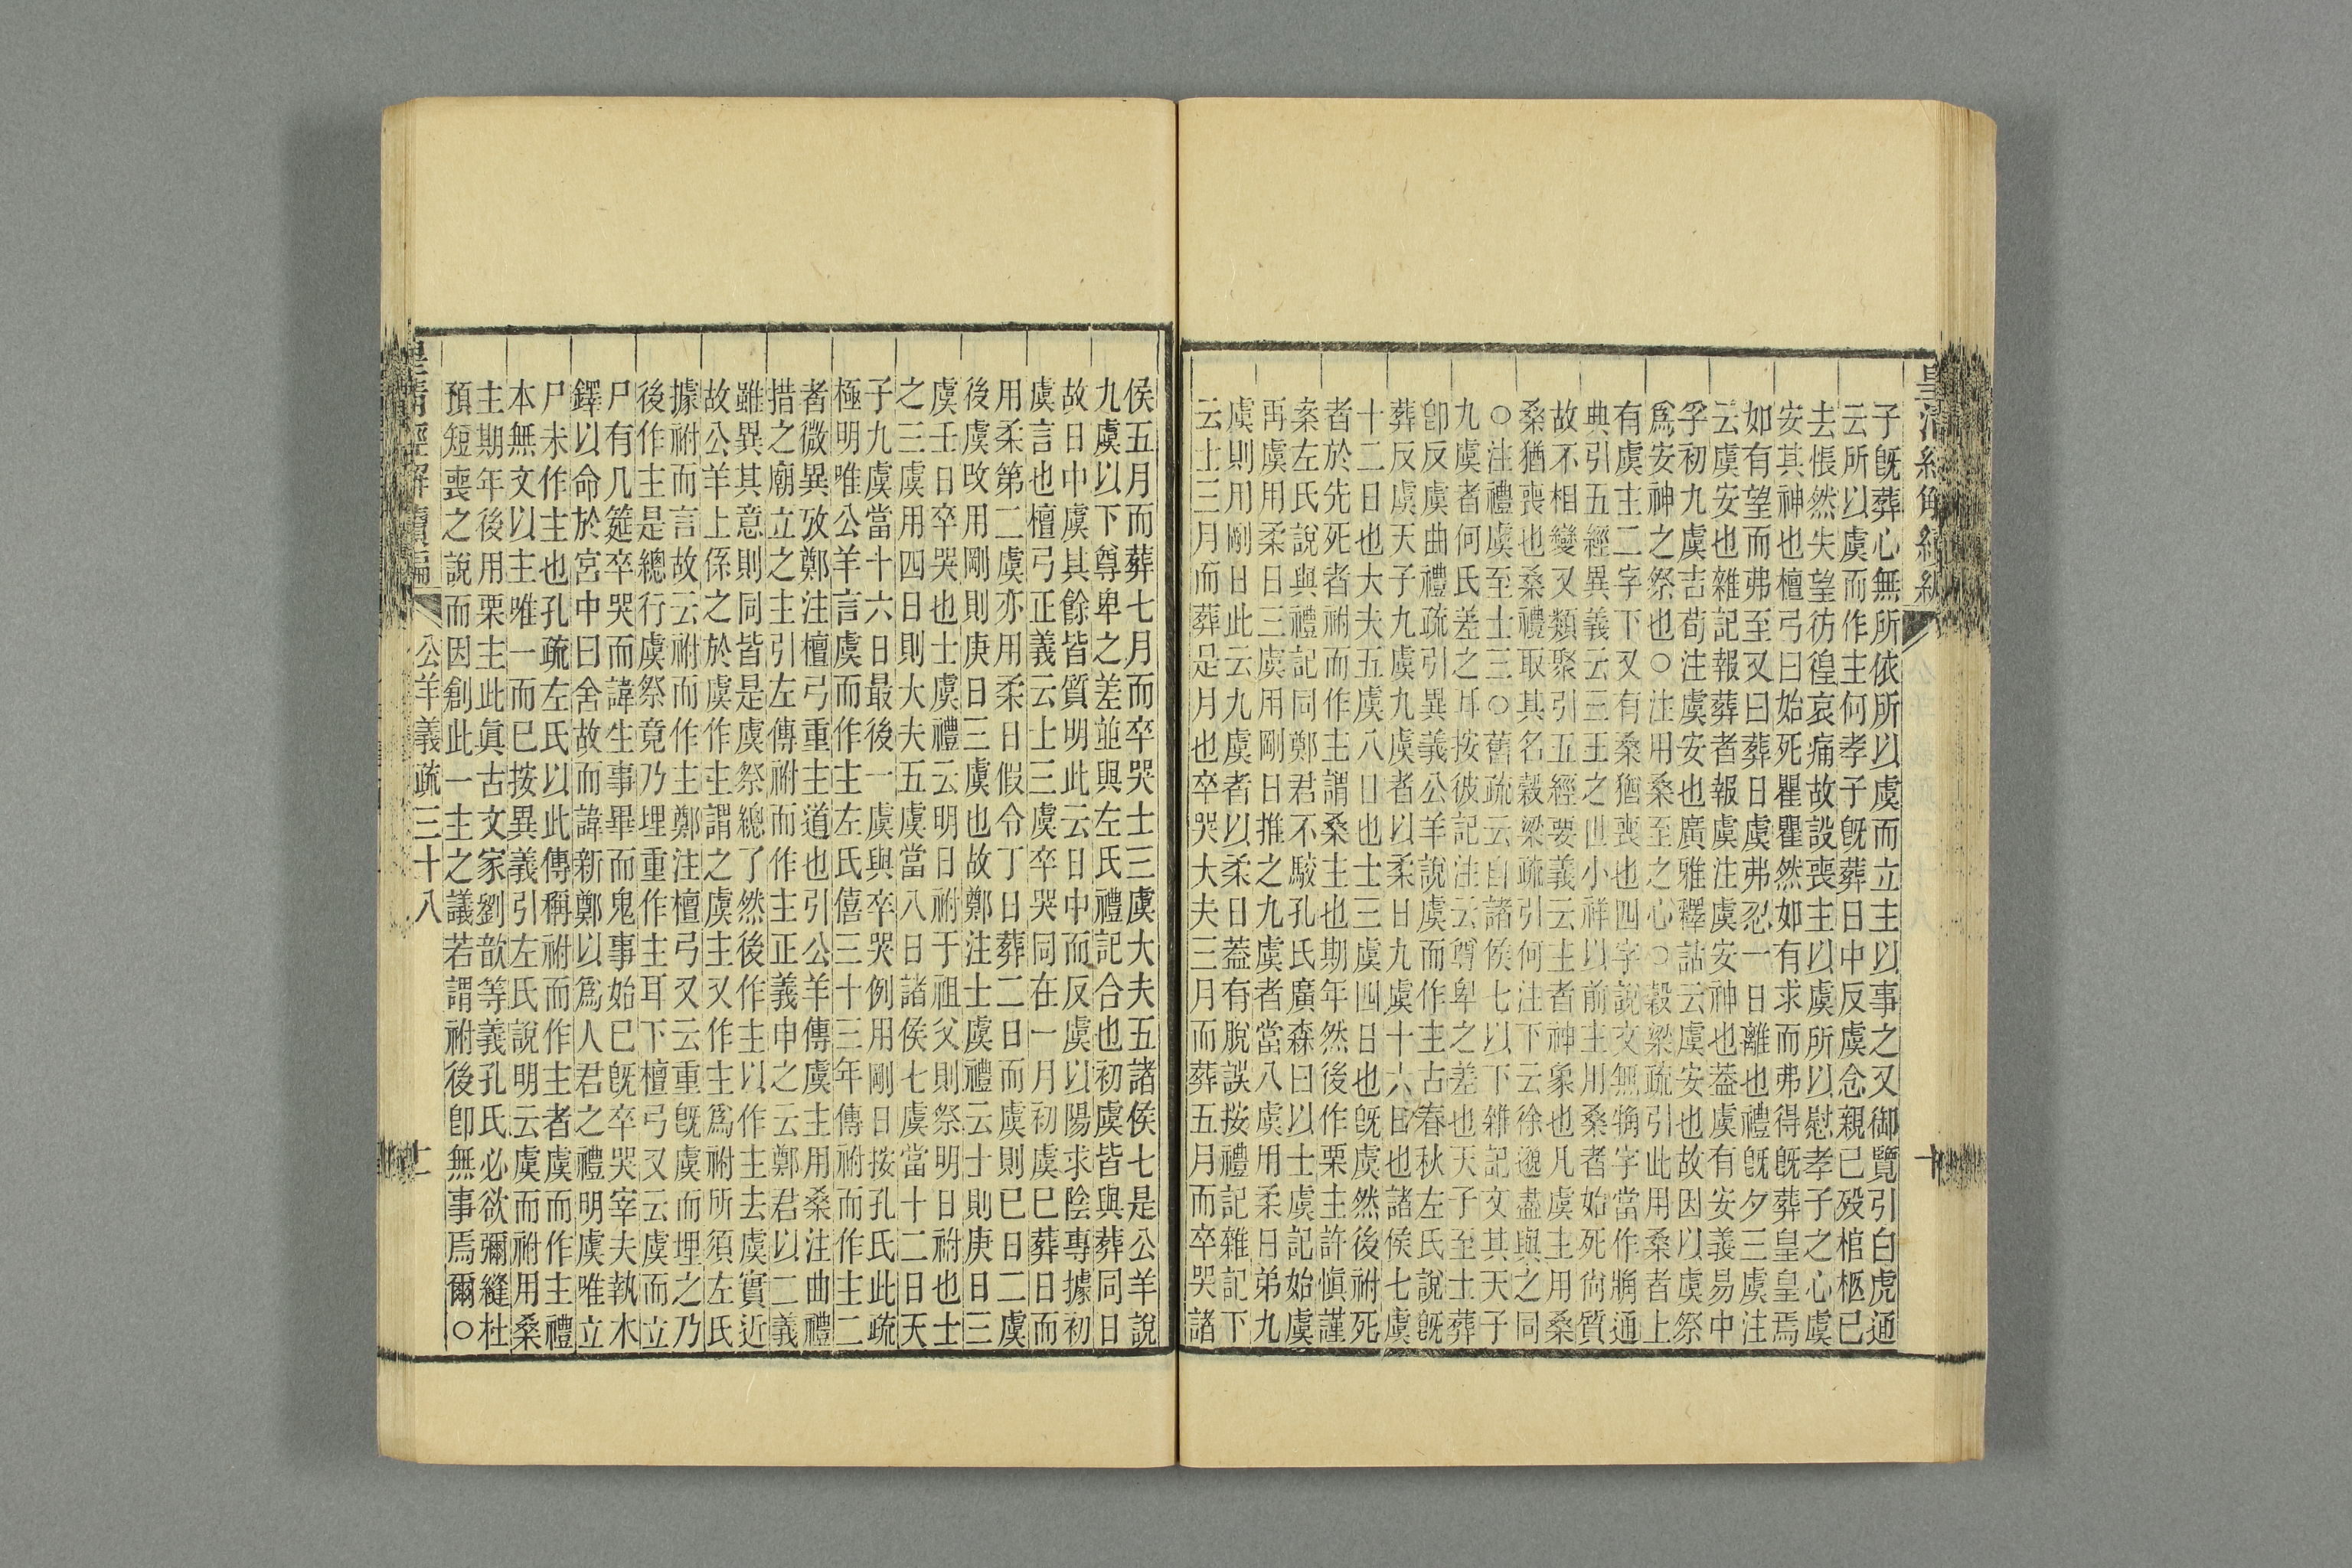 皇清經解續編
十
子旣葬心無所依所以虞而立主以事之又御覽引白虎通
云所以虞而作主何孝子旣葬日中反虞念親已歿棺柩已
去悵然失望彷徨哀痛故設喪主以虞所以慰孝子之心虞
安其神也檀弓曰始死瞿瞿然如有求而弗得旣葬皇皇焉
如有望而弗至又曰葬日虞弗忍一日離也禮旣夕三虞注
云虞安也雜記報葬者報虞注虞安神也葢虞有安義易中
孚初九虞吉荀注虞安也廣雅釋詁云虞安也故因以虞祭
爲安神之祭也○注用桑至之心○穀梁疏引此用桑者上
有虞主二字下又有桑猶喪也四字說文無字當作通
典引五經異義云三王之世小祥以前主用桑者始死尙質
故不相變又類聚引五經要義云主者神象也凡虞主用桑
桑猶喪也桑禮取其名穀梁疏引何注下云徐邈盡與之同
○注禮虞至士三○舊疏云自諸侯七以下雜記文其天子
九虞者何氏差之耳按彼記注云尊卑之差也天子至士葬
卽反虞曲禮疏引異義公羊說虞而作主古春秋左氏說旣
葬反虞天子九虞九虞者以柔日九虞十六日也諸侯七虞
十二日也大夫五虞八日也士三虞四日也旣虞然後祔死
者於先死者祔而作主謂桑主也期年然後作栗主許愼謹
案左氏說與禮記同鄭君不駮孔氏廣森曰以士虞記始虞
再虞用柔日三虞用剛日推之九虞者當八虞用柔日弟九
虞則用剛日此云九虞者以柔日葢有脫誤按禮記雜記下
云士三月而葬是月也卒哭大夫三月而葬五月而卒哭諸
侯五月而葬七月而卒哭士三虞大夫五諸侯七是公羊說
九虞以下尊卑之差並與左氏禮記合也初虞皆與葬同日
故日中虞其餘皆質明此云日中而反虞以陽求陰專據初
虞言也檀弓正義云士三虞卒哭同在一月初虞已葬日而
用柔第二虞亦用柔日假令丁日葬二日而虞則已日二虞
後虞改用剛則庚日三虞也故鄭注士虞禮云士則庚日三
虞壬日卒哭也士虞禮云明日祔于祖父則祭明日祔也士
之三虞用四日則大夫五虞當八日諸侯七虞當十二日天
子九虞當十六日最後一虞與卒哭例用剛日按孔氏此疏
極明唯公羊言虞而作主左氏僖三十三年傳祔而作主二
者微異攷鄭注檀弓重主道也引公羊傳虞主用桑注曲禮
措之廟立之主引左傳祔而作主正義申之云鄭君以二義
雖異其意則同皆是虞祭總了然後作主以作主去虞實近
故公羊上係之於虞作主謂之虞主又作主爲祔所須左氏
據祔而言故云祔而作主鄭注檀弓又云重旣虞而埋之乃
後作主是總行虞祭竟乃埋重作主耳下檀弓又云虞而立
尸有几筵卒哭而諱生事畢而鬼事始已旣卒哭宰夫執木
鐸以命於宮中曰舍故而諱新鄭以爲人君之禮明虞唯立
尸未作主也孔疏左氏以此傳稱祔而作主者虞而作主禮
本無文以主唯一而已按異義引左氏說明云虞而祔用桑
主期年後用栗主此眞古文家劉歆等義孔氏必欲彌縫杜
預短喪之說而因創此一主之議若謂祔後卽無事焉爾○
皇清經解續編
公羊義疏三十八